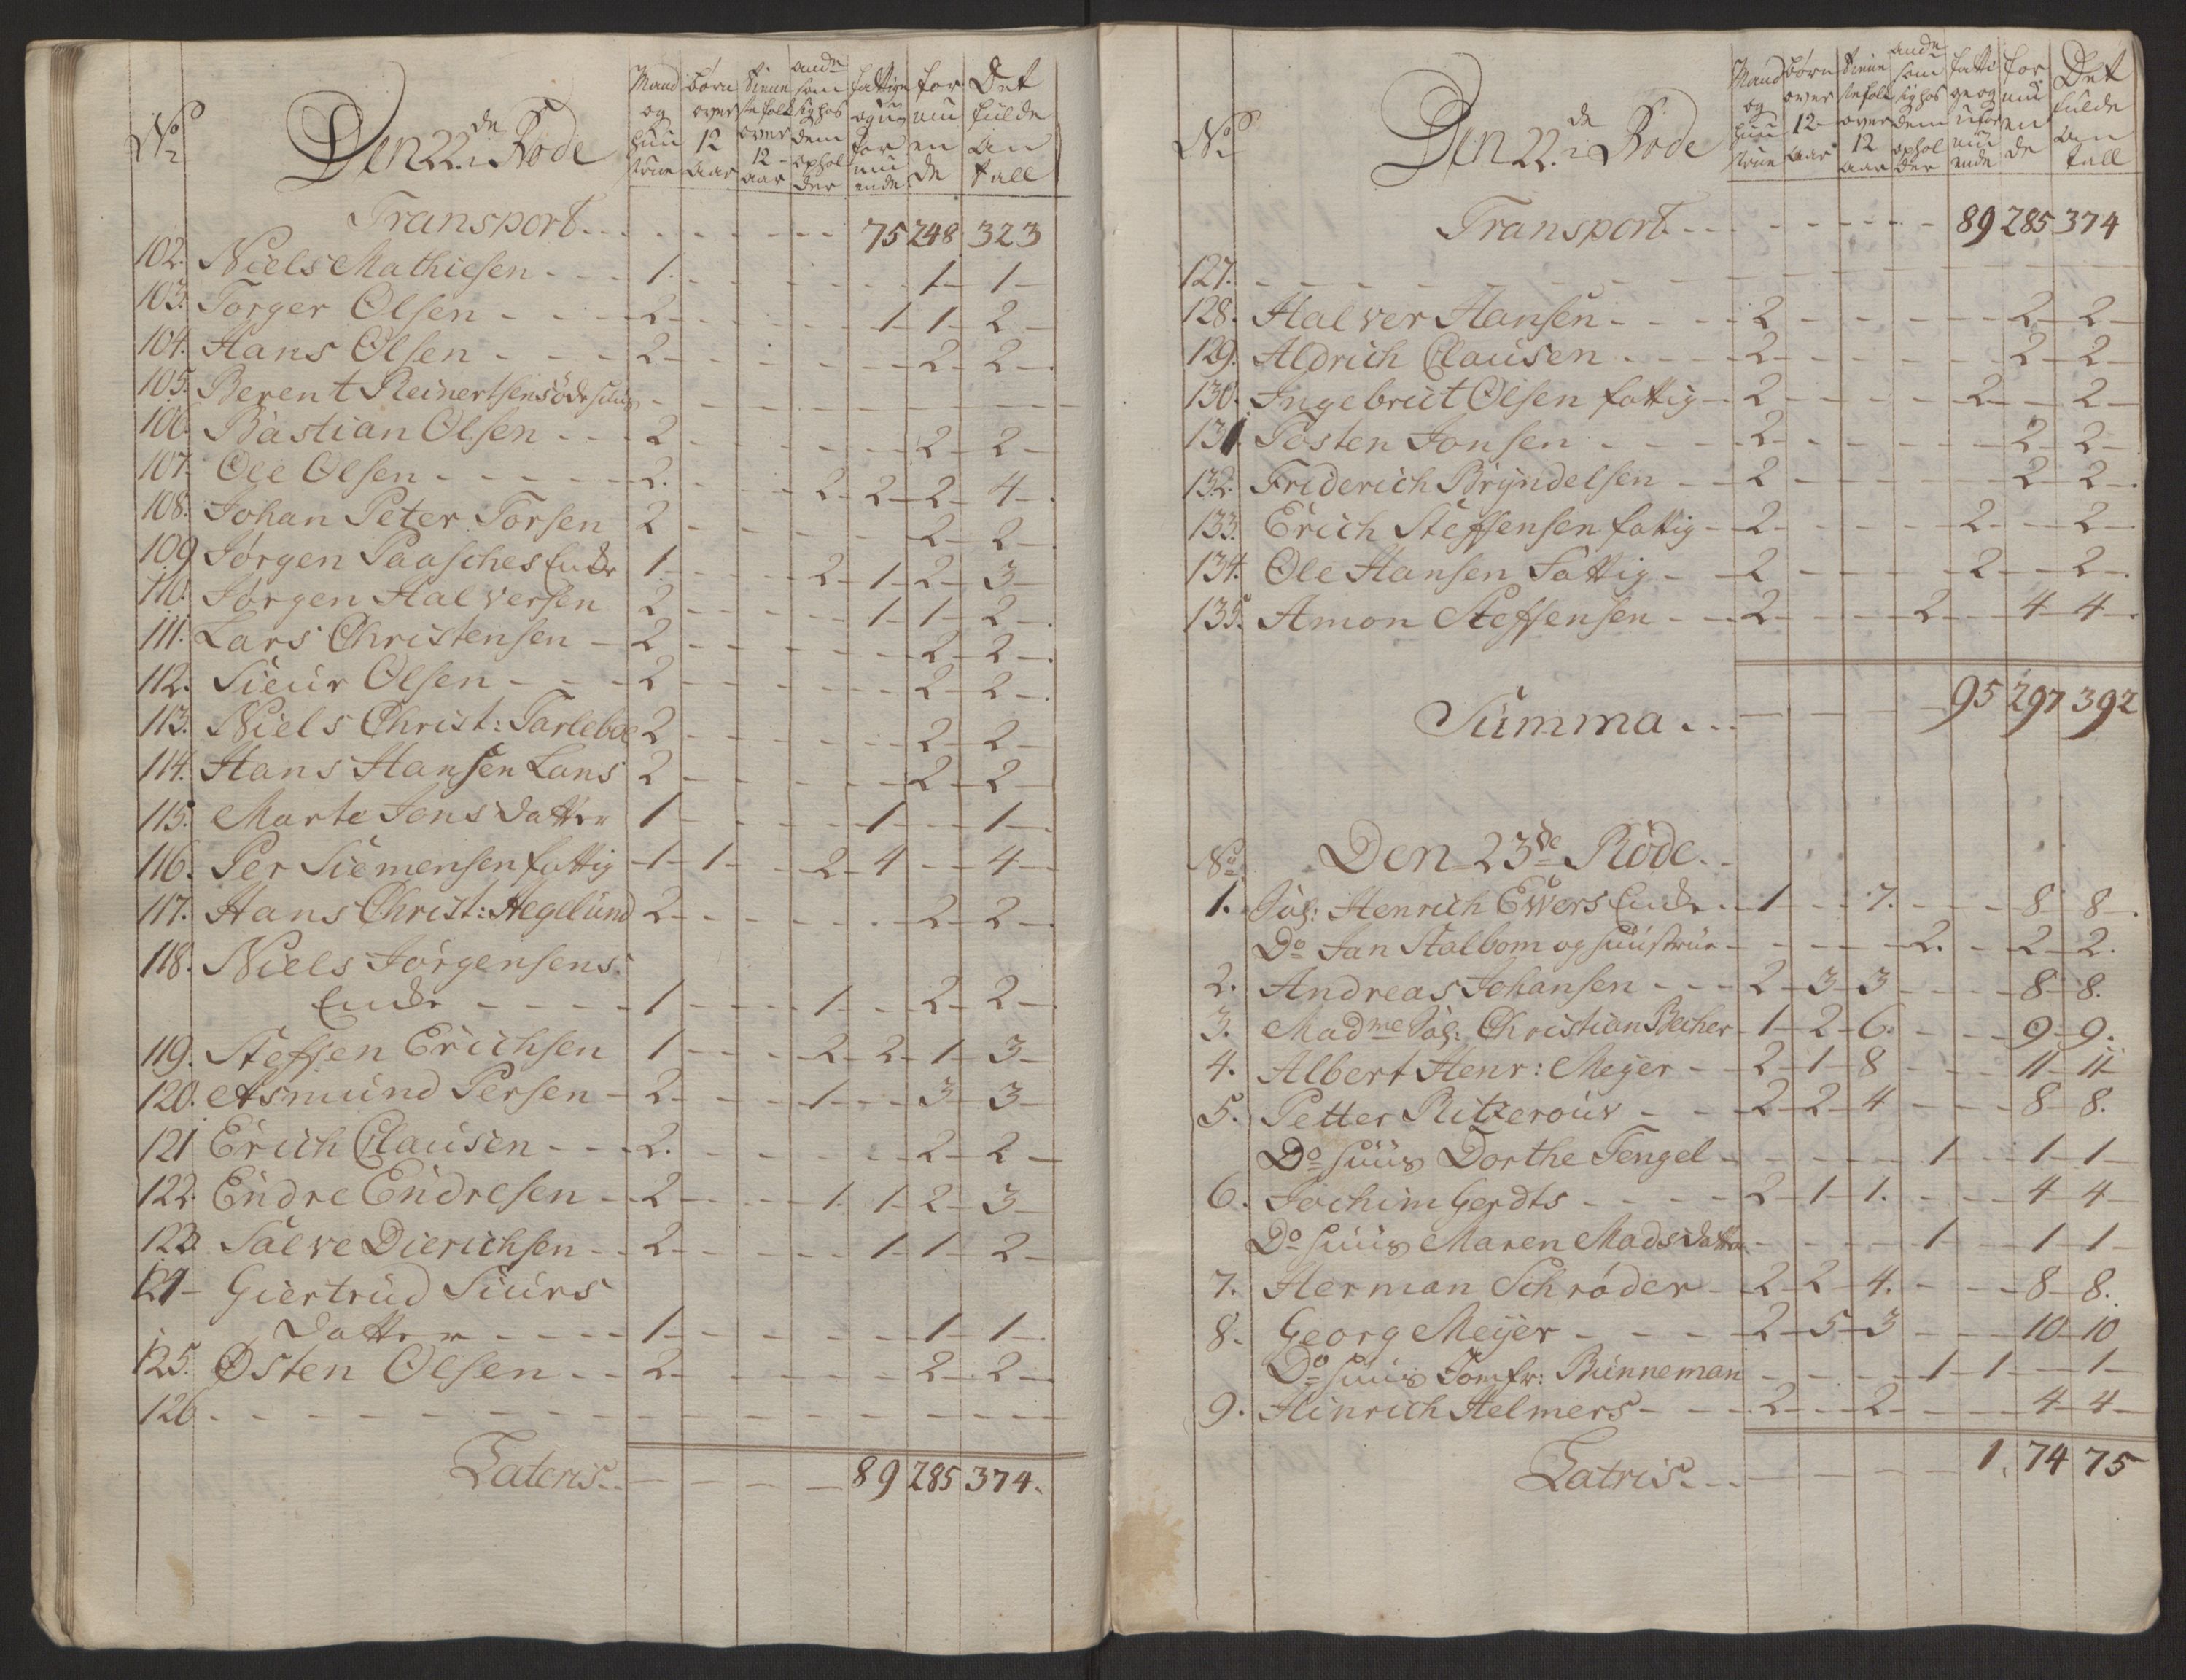 No
Den 22.de Rode
Mand og huustrue
børn over 12 aar
tienestefolk over 12 aar
ande som sig hos dem opholder
fattige og uformuende
formuende
Det fulde antall
Transport - - - 75 248 323
102. Niels Mathiesen - - - 1. - - 1 - 1 -
103. Torger Olsen - - - 2 - - 1 - 1 - 2 -
104. Hans Olsen - - - 2 - - 2 - 2 -
105. Berent Reinertsens øde huus - - -
106. Bastian Olsen - - - 2 - - 2 - 2 -
107. Ole Olsen - - - 2. - - 2 - 2 - 2 - 4 -
108. Johan Peter Torsen 2 - - 2 - 2 -
109 Jørgen Paasches Enke 1. - - 2 - 1 - 2 - 3 -
110. Jørgen Halversen 2 - - 1 - 1 - 2 -
111. Lars Christensen - 2 - - 2 - 2 -
112. Sieur Olsen - - - 2 - - 2 - 2 -
113. Niels Christ: Tarleboe 2 - - 2 - 2 -
114. Hans Hansen Lans 2 - - 2 - 2
115. Marte Jens datter 1 - - 1 - - 1 -
116. Per Siemensen fattig - 1 - 1 - - 2 - 4 - - 4 -
117. Hans Christ: Hegelund 2 - - 2 - 2 -
118. Niels Jørgensens
Enke - - - 1 - - 1 - - 2 - 2 -
119. Steffen Erichsen 1 - - 2 - 2 - 1 - 3 -
120. Asmund Persen - 2 - - 1 - - 3 - 3 -
121 Erich Clausen - - - 2. - - 2 - 2 -
122. Endre Endresen - - 2 - - 1. 1 - 2 - 3 -
123. Salve Dierichsen - - 2 - - 1 - 1 - 2 -
124 - Giertrud Siurs
datter - - - 1 - - 1 - 1 -
125. Østen Olsen - - 2 - - 2 - 2 -
126 - - -
Lateris - - - 89 285 374.
No
Den 22.de Rode
Mand og huustrue
børn over 12 aar
tienestefolk over 12 aar
ande som sig hos dem opholder
fattige og uformuende
formuende
Det fulde antall
Transport - - - 89 285 374
127. - - -
128. Halver Hansen - - - 2 - - 2 - 2 -
129. Aldrich Clausen - - - 2 - - 2 - 2 -
130. Ingebrict Olsen fattig - 2 - - 2 - - 2 -
131. Tosten Jonsen - - - 2 - - 2 - 2 -
132. Friderich Bryndelsen - - 2 - - 2 - 2 -
133. Erich Steffensen fattig - 2 - - 2 - - 2 -
134. Ole Hansen Fattig - - 2 - - 2 - - 2 -
135. Amon Steffensen - - 2 - - 2 - - 4 - 4 -
Summa - - - 95 297 392
No Den 23de Rode
1. Sal: Henrich Ewers Enke - 1 - - 7. - - 8 - 8 -
Do Jan Stalbom og huustrue - - - 2. - 2 - 2.
2. Andreas Johansen - - - 2 - 3 - 3 - - 8 - 8.
3. Madme Sal: Christian Becher - 1 - 2 - 6. - - 9 - 9.
4. Albert Henr: Meyer - - 2 - 1 - 8 - - 11 - 11
5. Petter Ritzerouv - - 2 - 2 - 4 - - 8 - 8.
Do huus Dorthe Fengel - - - 1 - - 1 - 1 -
6. Jochim Gerdts - - - 2 - 1 - 1. - - 4 - 4 -
Do huus Maren Madsdatter - - - 1 - - 1 - 1 -
7. Herman Schrøder - 2 - 2 - 4. - - 8 - 8.
8. Georg Meyer - - - 2 - 5 - 3 - - 10 - 10
Do huus Jomfr: Bunneman - - - 1 - 1 - - 1 -
9. Hinrich Helmers - - - 2 - - 2 - - 4 - 4 -
Latris - - - 1. 74 75